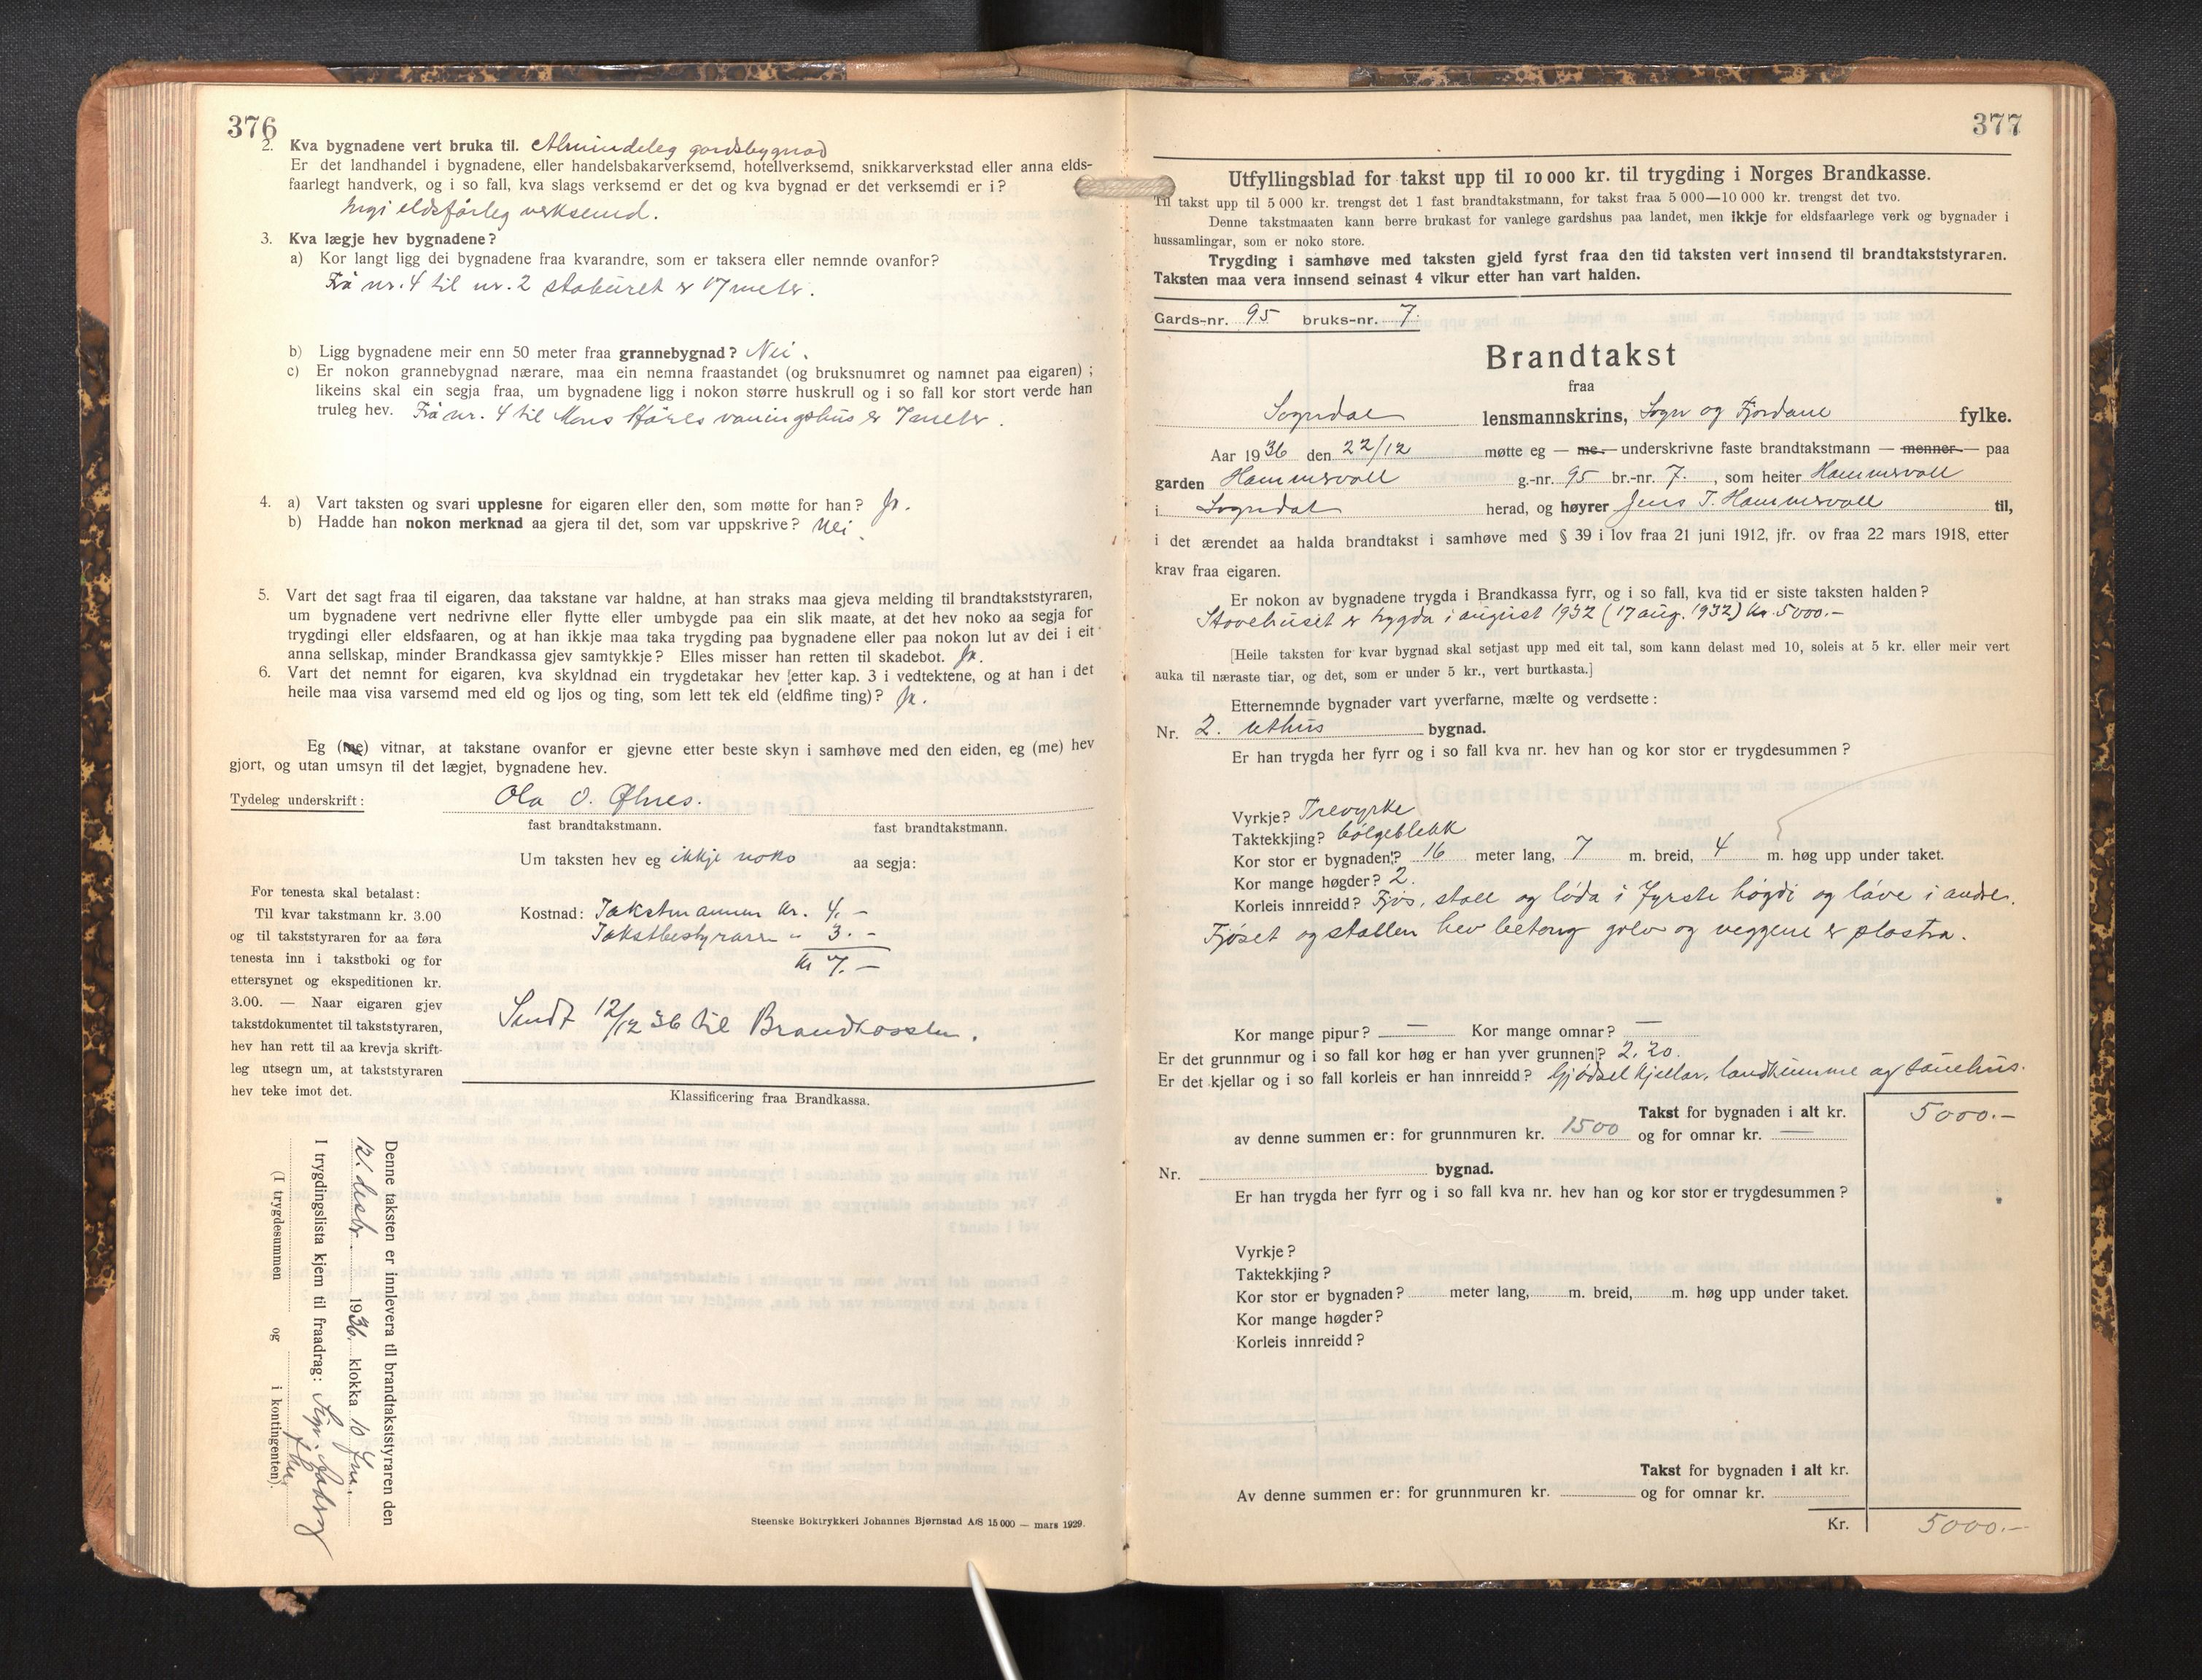 376
2. Kva bygnadene vert bruka til. Almindeleg gardsbygnad
Er det landhandel i bygnadene, eller handelsbakarverksemd, hotellverksemd, snikkarverkstad eller anna elds-
faarlegt handverk, og i so fall, kva slags verksemd er det og kva bygnad er det verksemdi er i?
Ingi eldsfårleg verksemd.
3. Kva lægje hev bygnadene?
a) Kor langt ligg dei bygnadene fraa kvarandre, som er taksera eller nemnde ovanfor?
Frå nr. 4 til nr. 2 stabüret er 17 meter.
b) Ligg bygnadene meir enn 50 meter fraa grannebygnad? Nei.
c) Er nokon grannebygnad nærare, maa ein nemna fraastandet (og bruksnumret og namnet paa eigaren) ;
likeins skal ein segja fraa, um bygnadene ligg i nokon større huskrull og i so fall kor stort verde han
truleg hev. Frå nr. 4 til Mons vaaningshus er 7 meter.
4. a) Vart taksten og svari upplesne for eigaren eller den, som møtte for han? Ja.
b) Hadde han nokon merknad aa gjera til det, som var uppskrive? Nei.
5. Vart det sagt fraa til eigaren, daa takstane var haldne, at han straks maa gjeva melding til brandtakststyraren,
um bygnadene vert nedrivne eller flytte eller umbygde paa ein slik maate, at det hev noko aa segja for
trygdingi eller eldsfaaren, og at han ikkje maa taka trygding paa bygnadene eller paa nokon lut av dei i eit
anna sellskap, minder Brandkassa gjev samtykkje? Elles misser han retten til skadebot. Ja.
6. Vart det nemnt for eigaren, kva skyldnad ein trygdetakar hev etter kap. 3 i vedtektene, og at han i det
heile maa visa varsemd med eld og ljos og ting, som lett tek eld (eldfime ting)? Ja.
Eg (me) vitnar, at takstane ovanfor er gjevne etter beste skyn i samhøve med den eiden, eg (me) hev
gjort, og utan umsyn til det lægjet, bygnadene hev.
Tydeleg underskrift: Ola O. Ølnes.
fast brandtakstmann. fast brandtakstmann.
Um taksten hev eg ikkje noko aa segja:
For tenesta skal betalast:
Til kvar takstmann kr. 3.00
og til takststyraren for aa føra
tenesta inn i takstboki og for
ettersynet og ekspeditionen kr.
3.00. — Naar eigaren gjev
takstdokumentet til takststyraren,
hev han rett til aa krevja skrift-
leg utsegn um, at takststyraren
hev teke imot det.
Kostnad: Takstmannen kr. 4.-
Takstbestyraren " 3.-
kr 7.-
Sendt 12/12 36 til Brandkassen.
Klassificering fraa Brandkassa.
Denne taksten er innlevera til brandtakststyraren den
12. desbr. 1936 klokka 10 fm.
I trygdingslista kjem til fraadrag:
(I trygdesummen og i kontingenten).
Steenske Boktrykkeri Johannes Bjørnstad A/S 15 000 — mars 1929.
377
Utfyllingsblad for takst upp til 10 000 kr. til trygding i Norges Brandkasse.
Til takst upp til 5 000 kr. trengst det 1 fast brandtakstmann, for takst fraa 5 000—10 000 kr. trengst det tvo.
Denne takstmaaten kann berre brukast for vanlege gardshus paa landet, men ikkje for eldsfaarlege verk og bygnader i
hussamlingar, som er noko store.
Trygding i samhøve med taksten gjeld fyrst fraa den tid taksten vert innsend til brandtakststyraren.
Taksten maa vera innsend seinast 4 vikur etter han vart halden.
Gards-nr. 95 bruks-nr. 7.
Brandtakst
fraa
Sogndal lensmannskrins, Sogn og Fjordane fylke.
Aar 1936 den 22/12 møtte eg — me — underskrivne faste brandtakstmann — menner — paa
garden Hammersvoll g.-nr. 95 br.-nr. 7. , som heiter Hammersvoll
i Sogndal herad, og høyrer Jens T. Hammersvoll til,
i det ærendet aa halda brandtakst i samhøve med § 39 i lov fraa 21 juni 1912, jfr. ov fraa 22 mars 1918, etter
krav fraa eigaren.
Er nokon av bygnadene trygda i Brandkassa fyrr, og i so fall, kva tid er siste taksten halden?
Stovehuset er trygda i august 1932 (17 aug. 1932) kr. 5000.-
[Heile taksten for kvar bygnad skal setjast upp med eit tal, som kann delast med 10, soleis at 5 kr. eller meir vert
auka til næraste tiar, og det, som er under 5 kr., vert burtkasta.]
Etternemnde bygnader vart yverfarne, mælte og verdsette :
Nr. 2. uthus bygnad.
Er han trygda her fyrr og i so fall kva nr. hev han og kor stor er trygdesummen ?
Vyrkje? Trevyrke
Taktekkjing? Bölgeblekk
Kor stor er bygnaden? 16 meter lang, 7 m. breid, 4 m. høg upp under taket.
Kor mange høgder? 2.
Korleis innreidd? Fjös, stall og löda i fyrste högdi og låve i andre.
Fjöset og stallen hev betong golv og veggene er plastra.
Kor mange pipur? — Kor mange omnar? —
Er det grunnmur og i so fall kor høg er han yver grunnen? 2.20.
Er det kjellar og i so fall korleis er han innreidd? Gjödselkjellar, landkumme og sauehus.
Takst for bygnaden i alt kr. 5000.-
av denne summen er: for grunnmuren kr. 1500 og for omnar kr. —
Nr. bygnad.
Er han trygda her fyrr og i so fall kva nr. hev han og kor stor er trygdesummen ?
Vyrkje ?
Taktekkjing ?
Kor stor er bygnaden? meter lang, m. breid, m. høg upp under taket.
Kor mange høgder?
Korleis innreidd ?
Takst for bygnaden i alt kr.
Av denne summen er: for grunnmuren kr. og for omnar kr.
Kr. 5000.-